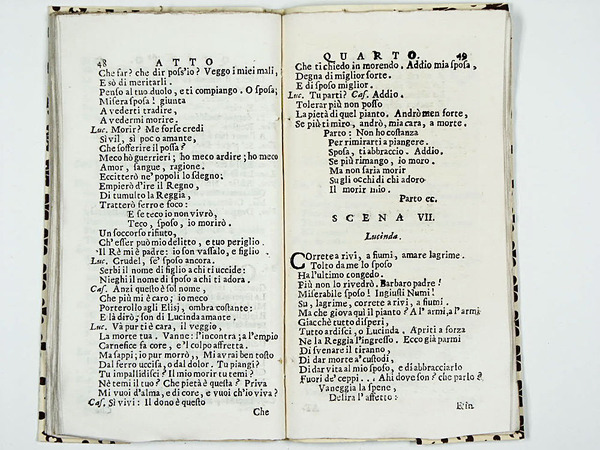 48 ATTO
Che far? che dir poss'io? Veggo i miei mali,
E sò di meritarli.
Penso al tuo duolo, e ti compiango. O sposa;
Misera sposa! giunta
A vederti tradire,
A vedermi morire.
Luc. Morir? Me forse credi
Sì vil, sì poco amante,
Che sofferire il possa?
Meco hò guerrieri; ho meco ardire; ho meco
Amor, sangue, ragione.
Ecciterò ne' popoli lo sdegno:
Empierò d'ire il Regno,
Di tumulto la Reggia,
Tratterò ferro e foco:
E se teco io non vivrò,
Teco, sposo, io morirò.
Un soccorso rifiuto,
Ch'esser può mio delitto, e tuo periglio.
Il Rè mi è padre: io son vassalo, e figlio.
Luc. Crudel, se' sposo ancora.
Serbi il nome di figlio a chi ti uccide:
Nieghi il nome di sposo a chi ti adora.
Cas. Anzi questo è sol nome,
Che più mi è caro; io meco
Porterollo agli Elisj, ombra costante:
E là dirò; son di Lucinda amante.
Luc. Và pur ti è cara, il veggio,
La morte tua. Vanne: l'incontra; a l'empio
Carnefice fa core, e'l colpo affretta.
Ma sappi; io pur morrò,, Mi avrai ben tosto
Dal ferro uccisa, o dal dolor. Tu piangi?
Tu impallidisci? Il mio morir tu temi?
Nè temi il tuo? Che pietà è questa? Priva
Mi vuoi d'alma, e di core, e vuoi ch'io viva?
Cas. Sì vivi: Il dono è questo
Che
QUARTO. 49
Che ti chiedo in morendo. Addio mia sposa,
Degna di miglior sorte.
E di sposo miglior.
Luc. Tu parti? Cas. Addio.
Tolerar più non posso
La pietà di quel pianto. Andrò men forte,
Se più ti miro, andrò, mia cara, a morte.
Parto: Non hò costanza
Per rimirarti a piangere.
Sposa, ti abbraccio. Addio.
Se più rimango, io moro.
Ma non saria morir
Su gli occhi di chi adoro
Il morir mio.
Parto ec.
SCENA VII.
Lucinda.
COrrete a rivi, a fiumi, amare lagrime.
Tolto da me lo sposo
Ha l'ultimo congedo.
Più non lo rivedrò. Barbaro padre!
Miserabile sposo! Ingiusti Numi!
Su, lagrime, correte a rivi, a fiumi.
Ma che giova qui il pianto? A l'armi, a l'armi
Giacchè tutto disperi,
Tutto ardisci, o Lucinda. Apriti a forza
Ne la Reggia l'ingresso. Ecco già parmi
Di svenare il tiranno,
Di dar morte a' custodi,
Di dar vita al mio sposo, e di abbracciarlo
Fuori de' ceppi... Ahi dove son? che parlo?
Vaneggia la spene,
Delira l'affetto:
E in